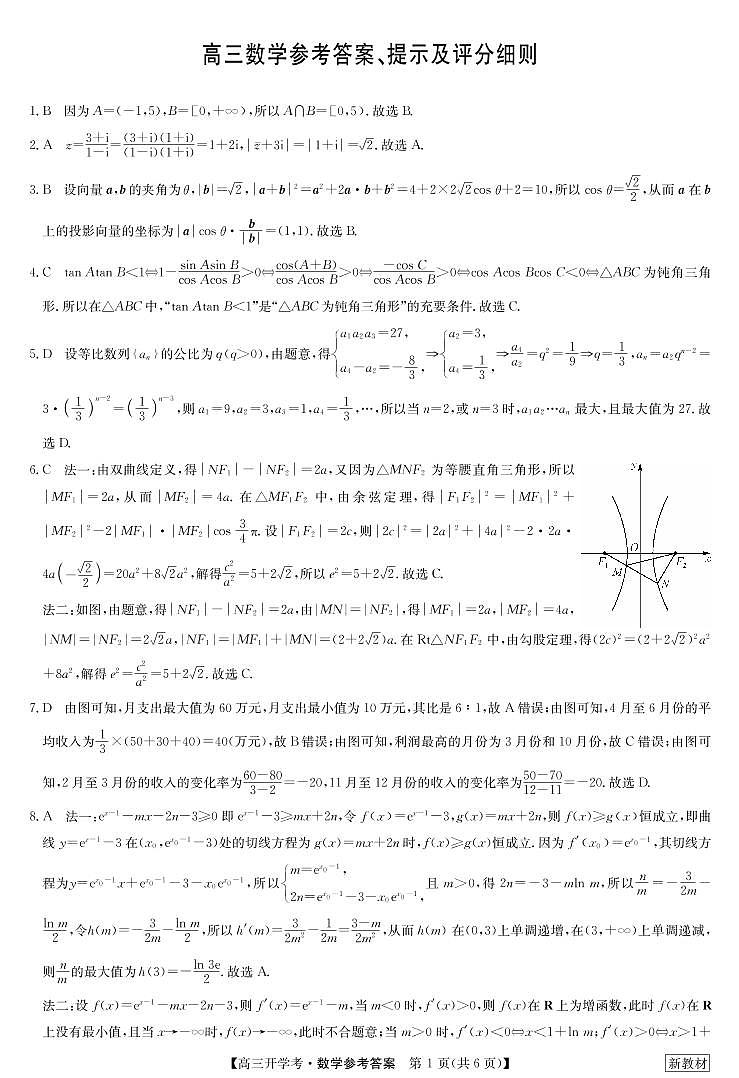 高三数学参考答案、提示及评分细则
1. B 因为 A=(-1,5),B=[0,+∞),所以 A∩B=[0,5). 故选 B.
2. A z=\frac{3+i}{1-i}=\frac{(3+i)(1+i)}{(1-i)(1+i)}=1+2i,|\bar{z}+3i|=|1+i|=\sqrt{2}. 故选 A.
3. B 设向量 a,b 的夹角为 θ,|b|=\sqrt{2},|a+b|²=a²+2a·b+b²=4+2×2\sqrt{2}cos θ+2=10,所以 cos θ=\frac{\sqrt{2}}{2},从而 a 在 b
上的投影向量的坐标为|a|cos θ·\frac{b}{|b|}=(1,1). 故选 B.
4. C tan Atan B<1⇔1-\frac{sin Asin B}{cos Acos B}>0⇔\frac{cos(A+B)}{cos Acos B}>0⇔\frac{-cos C}{cos Acos B}>0⇔cos Acos Bcos C<0⇔△ABC 为钝角三角
形. 所以在△ABC 中,“tan Atan B<1”是“△ABC 为钝角三角形”的充要条件. 故选 C.
5. D 设等比数列{a_n}的公比为 q(q>0),由题意,得\begin{cases}a_1a_2a_3=27,\\a_4-a_2=-\frac{8}{3},\end{cases}⇒\begin{cases}a_2=3,\\a_4=\frac{1}{3},\end{cases}⇒\frac{a_4}{a_2}=q²=\frac{1}{9}⇒q=\frac{1}{3},a_n=a_2q^{n-2}=
3·(\frac{1}{3})^{n-2}=(\frac{1}{3})^{n-3},则 a_1=9,a_2=3,a_3=1,a_4=\frac{1}{3},…,所以当 n=2,或 n=3 时,a_1a_2…a_n 最大,且最大值为 27. 故
选 D.
6. C 法一:由双曲线定义,得|NF_1|-|NF_2|=2a,又因为△MNF_2 为等腰直角三角形,所以
|MF_1|=2a,从而|MF_2|=4a. 在△MF_1F_2 中,由余弦定理,得|F_1F_2|²=|MF_1|²+
|MF_2|²-2|MF_1|·|MF_2|cos \frac{3}{4}π. 设|F_1F_2|=2c,则|2c|²=|2a|²+|4a|²-2·2a·
4a(-\frac{\sqrt{2}}{2})=20a²+8\sqrt{2}a²,解得\frac{c²}{a²}=5+2\sqrt{2},所以 e²=5+2\sqrt{2}. 故选 C.
法二:如图,由题意,得|NF_1|-|NF_2|=2a,由|MN|=|NF_2|,得|MF_1|=2a,|MF_2|=4a,
|NM|=|NF_2|=2\sqrt{2}a,|NF_1|=|MF_1|+|MN|=(2+2\sqrt{2})a. 在 Rt△NF_1F_2 中,由勾股定理,得(2c)²=(2+2\sqrt{2})²a²
+8a²,解得 e²=\frac{c²}{a²}=5+2\sqrt{2}. 故选 C.
y
O
F_1
M
F_2
x
N
7. D 由图可知,月支出最大值为 60 万元,月支出最小值为 10 万元,其比是 6∶1,故 A 错误;由图可知,4 月至 6 月份的平
均收入为\frac{1}{3}×(50+30+40)=40(万元),故 B 错误;由图可知,利润最高的月份为 3 月份和 10 月份,故 C 错误;由图可
知,2 月至 3 月份的收入的变化率为\frac{60-80}{3-2}=-20,11 月至 12 月份的收入的变化率为\frac{50-70}{12-11}=-20. 故选 D.
8. A 法一:e^{x-1}-mx-2n-3≥0 即 e^{x-1}-3≥mx+2n,令 f(x)=e^{x-1}-3,g(x)=mx+2n,则 f(x)≥g(x)恒成立,即曲
线 y=e^{x-1}-3 在(x_0,e^{x_0-1}-3)处的切线方程为 g(x)=mx+2n 时,f(x)≥g(x)恒成立. 因为 f′(x_0)=e^{x_0-1},其切线方
程为y=e^{x_0-1}x+e^{x_0-1}-3-x_0e^{x_0-1},所以\begin{cases}m=e^{x_0-1},\\2n=e^{x_0-1}-3-x_0e^{x_0-1},\end{cases}且 m>0,得 2n=-3-mln m,所以\frac{n}{m}=-\frac{3}{2m}-
\frac{ln m}{2},令h(m)=-\frac{3}{2m}-\frac{ln m}{2},所以 h′(m)=\frac{3}{2m²}-\frac{1}{2m}=\frac{3-m}{2m²},从而 h(m) 在(0,3)上单调递增,在(3,+∞)上单调递减,
则\frac{n}{m}的最大值为 h(3)=-\frac{ln 3e}{2}. 故选 A.
法二:设 f(x)=e^{x-1}-mx-2n-3,则 f′(x)=e^{x-1}-m,当 m<0 时,f′(x)>0,则 f(x)在 R 上为增函数,此时 f(x)在 R
上没有最小值,且当 x→-∞时,f(x)→-∞,此时不合题意;当 m>0 时,f′(x)<0⇔x<1+ln m;f′(x)>0⇔x>1+
【高三开学考·数学参考答案 第 1 页(共 6 页)】
新教材